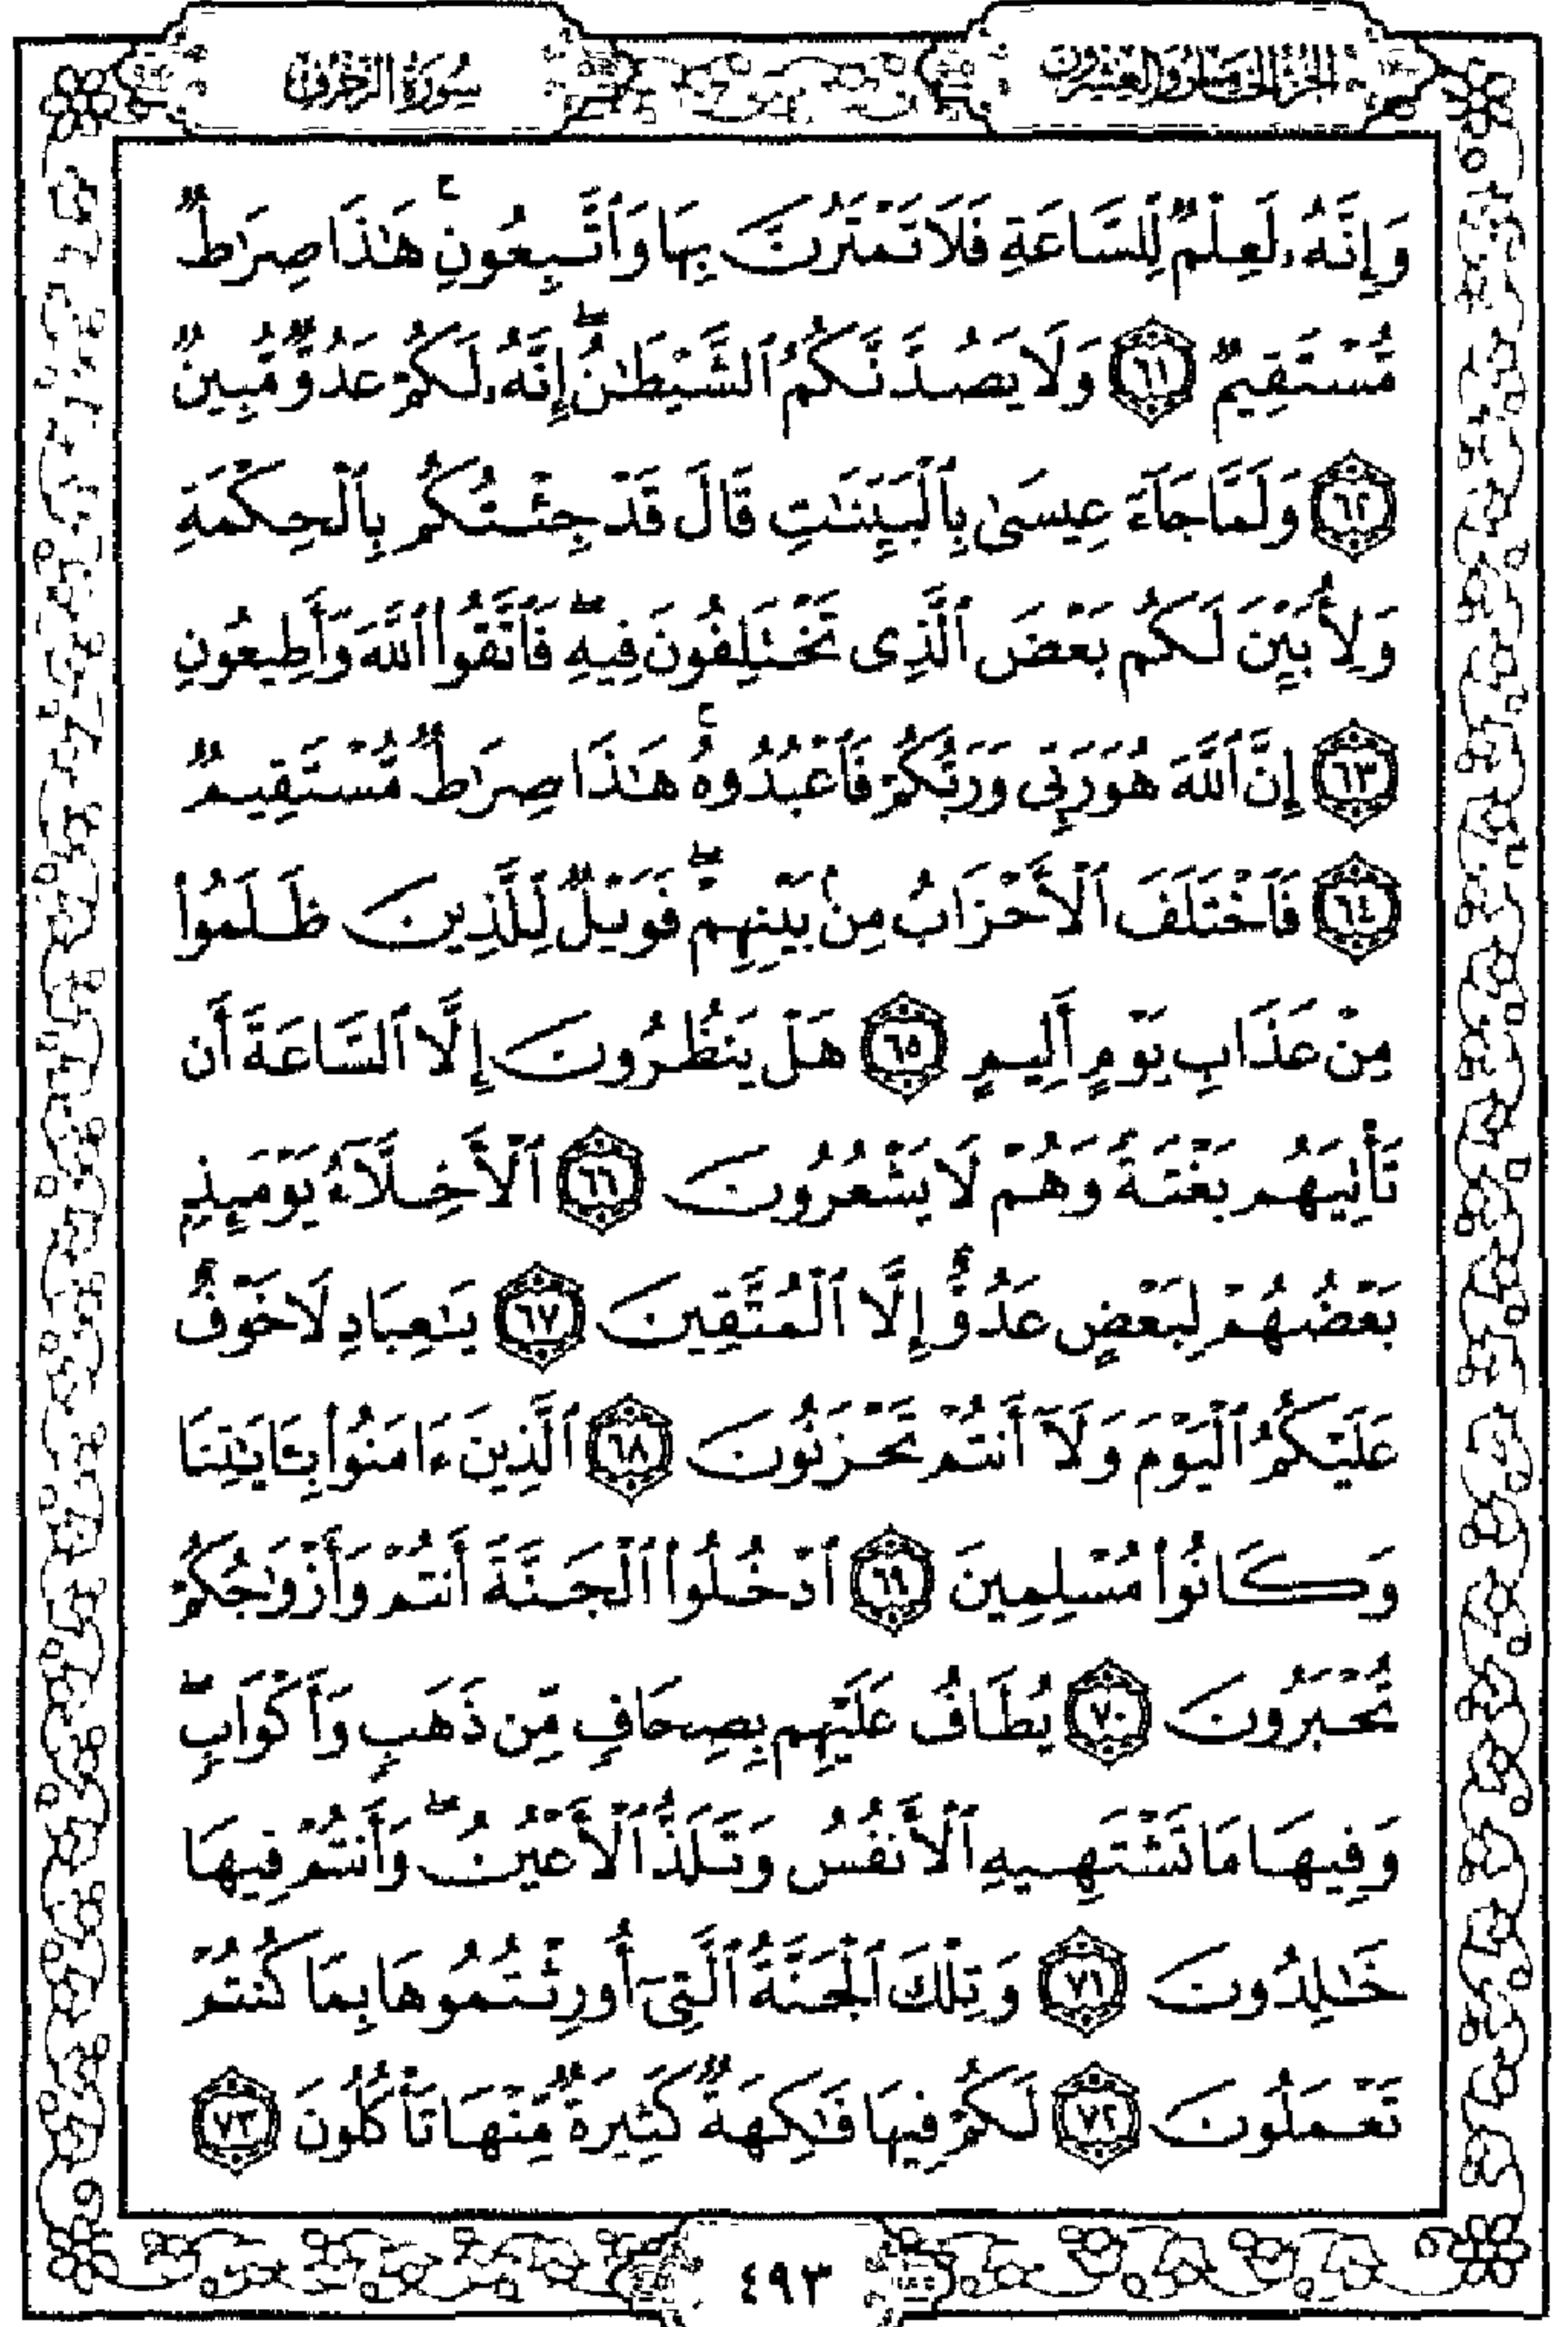 الجزء الخامس والعشرون
سورة الزخرف
وَإِنَّهُۥ لَعِلْمٌ لِّلسَّاعَةِ فَلَا تَمْتَرُنَّ بِهَا وَٱتَّبِعُونِ ۚ هَٰذَا صِرَٰطٌ
مُّسْتَقِيمٌ ٦١ وَلَا يَصُدَّنَّكُمُ ٱلشَّيْطَٰنُ ۖ إِنَّهُۥ لَكُمْ عَدُوٌّ مُّبِينٌ
٦٢ وَلَمَّا جَآءَ عِيسَىٰ بِٱلْبَيِّنَٰتِ قَالَ قَدْ جِئْتُكُم بِٱلْحِكْمَةِ
وَلِأُبَيِّنَ لَكُم بَعْضَ ٱلَّذِى تَخْتَلِفُونَ فِيهِ ۖ فَٱتَّقُوا۟ ٱللَّهَ وَأَطِيعُونِ
٦٣ إِنَّ ٱللَّهَ هُوَ رَبِّى وَرَبُّكُمْ فَٱعْبُدُوهُ ۚ هَٰذَا صِرَٰطٌ مُّسْتَقِيمٌ
٦٤ فَٱخْتَلَفَ ٱلْأَحْزَابُ مِنۢ بَيْنِهِمْ ۖ فَوَيْلٌ لِّلَّذِينَ ظَلَمُوا۟
مِنْ عَذَابِ يَوْمٍ أَلِيمٍ ٦٥ هَلْ يَنظُرُونَ إِلَّا ٱلسَّاعَةَ أَن
تَأْتِيَهُم بَغْتَةً وَهُمْ لَا يَشْعُرُونَ ٦٦ ٱلْأَخِلَّآءُ يَوْمَئِذٍۭ
بَعْضُهُمْ لِبَعْضٍ عَدُوٌّ إِلَّا ٱلْمُتَّقِينَ ٦٧ يَٰعِبَادِ لَا خَوْفٌ
عَلَيْكُمُ ٱلْيَوْمَ وَلَآ أَنتُمْ تَحْزَنُونَ ٦٨ ٱلَّذِينَ ءَامَنُوا۟ بِـَٔايَٰتِنَا
وَكَانُوا۟ مُسْلِمِينَ ٦٩ ٱدْخُلُوا۟ ٱلْجَنَّةَ أَنتُمْ وَأَزْوَٰجُكُمْ
تُحْبَرُونَ ٧٠ يُطَافُ عَلَيْهِم بِصِحَافٍ مِّن ذَهَبٍ وَأَكْوَابٍ ۖ
وَفِيهَا مَا تَشْتَهِيهِ ٱلْأَنفُسُ وَتَلَذُّ ٱلْأَعْيُنُ ۖ وَأَنتُمْ فِيهَا
خَٰلِدُونَ ٧١ وَتِلْكَ ٱلْجَنَّةُ ٱلَّتِىٓ أُورِثْتُمُوهَا بِمَا كُنتُمْ
تَعْمَلُونَ ٧٢ لَكُمْ فِيهَا فَٰكِهَةٌ كَثِيرَةٌ مِّنْهَا تَأْكُلُونَ ٧٣
٤٩٣